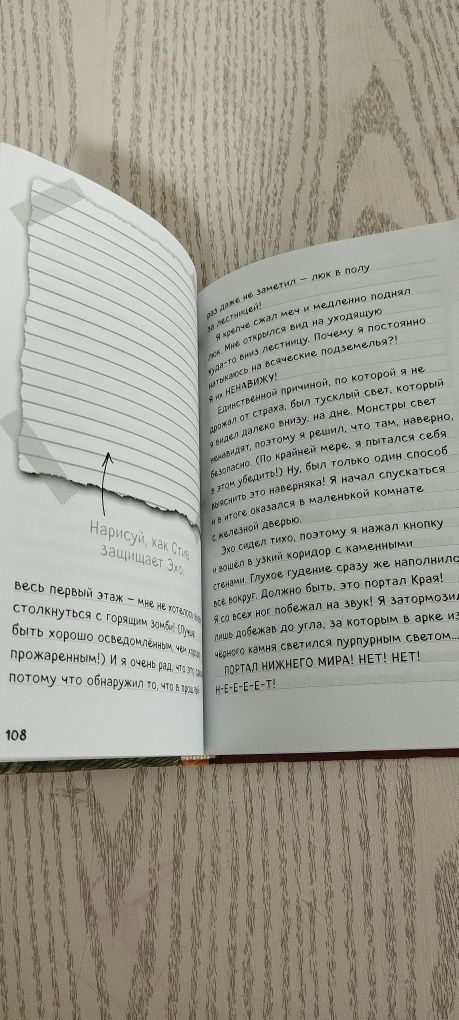 Нарисуй, как Стив
защищает Эхо.
весь первый этаж — мне не хотелось
столкнуться с горящим зомби! (Лучше
быть хорошо осведомлённым, чем хорошо
прожаренным!) И я очень рад, что это
потому что обнаружил то, что в прошлый
108
раз даже не заметил — люк в полу
за лестницей!
Я крепче сжал меч и медленно поднял
люк. Мне открылся вид на уходящую
куда-то вниз лестницу. Почему я постоянно
натыкаюсь на всяческие подземелья?!
Я их НЕНАВИЖУ!
Единственной причиной, по которой я не
дрожал от страха, был тусклый свет, который
я видел далеко внизу, на дне. Монстры свет
ненавидят, поэтому я решил, что там, наверно,
безопасно. (По крайней мере, я пытался себя
в этом убедить!) Ну, был только один способ
выяснить это наверняка! Я начал спускаться
и в итоге оказался в маленькой комнате
с железной дверью.
Эхо сидел тихо, поэтому я нажал кнопку
и вошёл в узкий коридор с каменными
стенами. Глухое гудение сразу же наполнило
всё вокруг. Должно быть, это портал Края!
Я со всех ног побежал на звук! Я затормозил,
лишь добежав до угла, за которым в арке из
чёрного камня светился пурпурным светом...
ПОРТАЛ НИЖНЕГО МИРА! НЕТ! НЕТ!
Н-Е-Е-Е-Е-Т!